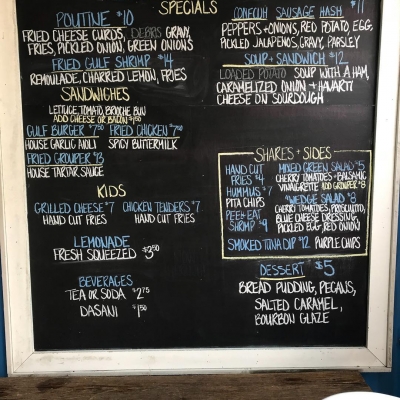 SPECIALS
POUTINE $10
FRIED CHEESE CURDS, DEBRIS GRAVY,
FRIES, PICKLED ONION, GREEN ONIONS
FRIED GULF SHRIMP $14
REMOULADE, CHARRED LEMON, FRIES
SANDWICHES
LETTUCE, TOMATO, BRIOCHE BUN
ADD CHEESE OR BACON $1.50
GULF BURGER $7.50 FRIED CHICKEN $7.50
HOUSE GARLIC AIOLI SPICY BUTTERMILK
FRIED GROUPER $13
HOUSE TARTAR SAUCE
KIDS
GRILLED CHEESE $7 CHICKEN TENDERS $7
HAND CUT FRIES HAND CUT FRIES
LEMONADE
FRESH SQUEEZED $3.50
BEVERAGES
TEA OR SODA $2.75
DASANI $1.50
CONECUH SAUSAGE HASH $11
PEPPERS + ONIONS, RED POTATO, EGG,
PICKLED JALAPENOS, GRAVY, PARSLEY
SOUP + SANDWICH $12
LOADED POTATO SOUP WITH A HAM,
CARAMELIZED ONION + HAVARTI
CHEESE ON SOURDOUGH
SHARES + SIDES
HAND CUT
FRIES $4
HUMMUS $7
PITA CHIPS
PEEL + EAT
SHRIMP $9
MIXED GREEN SALAD $5
CHERRY TOMATOES + BALSAMIC
VINAIGRETTE ADD GROUPER $8
WEDGE SALAD $8
CHERRY TOMATOES, PROSCIUTTO,
BLUE CHEESE DRESSING,
PICKLED EGG, RED ONION
SMOKED TUNA DIP $12 PURPLE CHIPS
DESSERT $5
BREAD PUDDING, PECANS,
SALTED CARAMEL,
BOURBON GLAZE